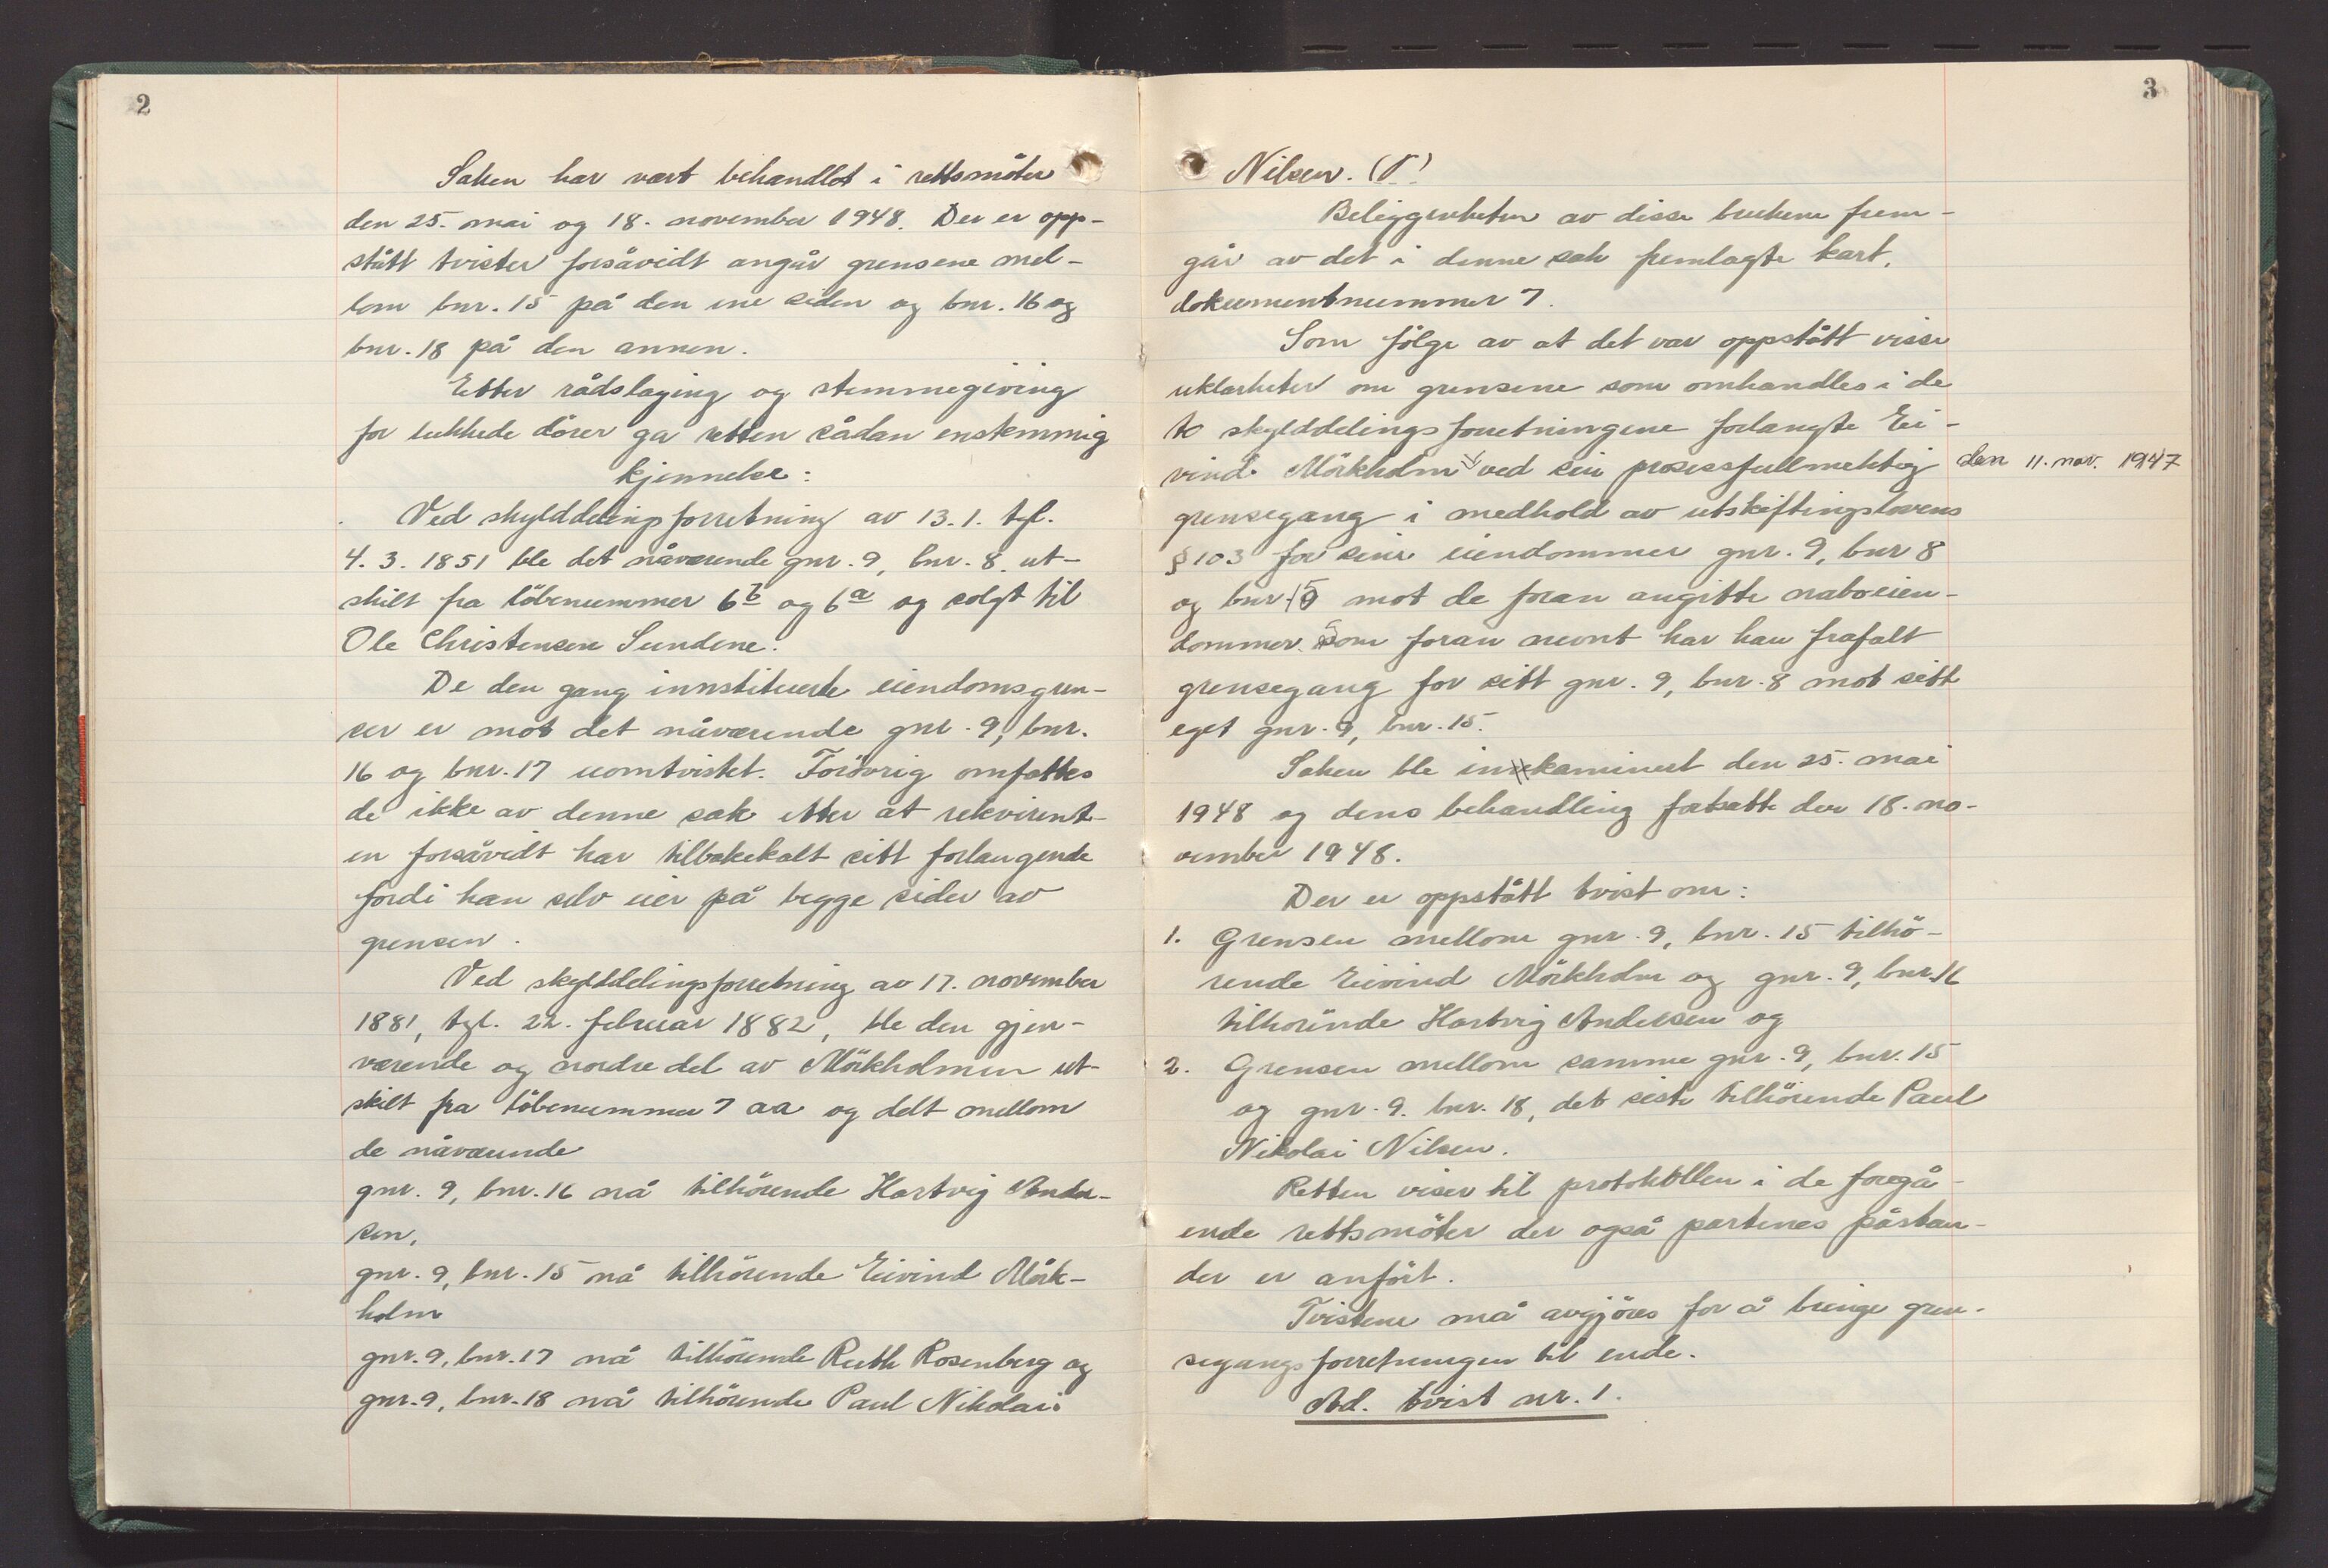 2
Saken har vært behandlet i rettsmöter
den 25. mai og 18. november 1948. Der er opp-
stått tvister forsåvidt angår grensene mel-
lom bnr. 15 på den ene siden og bnr. 16 og
bnr. 18 på den annen.
Etter rådslaging og stemmegiving
for lukkede dörer ga retten sådan enstemmig
kjennelse:
Ved skylddelingsforretning av 13. 1. tgl.
4. 3. 1851 ble det nåværende gnr. 9, bnr. 8. ut-
skilt fra löbenummer 6b og 6a og solgt til
Ole Christensen Sundene.
De den gang innstituerte eiendomsgren-
ser er mot det nåværende gnr. 9, bnr.
16 og bnr. 17 uomtvistet. Forövrig omfattes
de ikke av denne sak etter at rekvirent-
en forsåvidt har tilbakekalt sitt forlangende
fordi han selv eier på begge sider av
grensen.
Ved skylddelingsforretning av 17. november
1881, tgl. 22. februar 1882, ble den gjen-
værende og nordre del av Mörkholmen ut-
skilt fra löbenummer 7 aa og delt mellom
de nåværende
gnr. 9, bnr. 16 nå tilhörende Hartvig Ander-
sen,
gnr. 9, bnr. 15 nå tilhörende Eivind Mörk-
holm
gnr. 9, bnr. 17 nå tilhörende Ruth Rosenberg og
gnr. 9, bnr. 18 nå tilhörende Paul Nikolai
3
Nilsen.
Beliggenheten av disse brukene frem-
går av det i denne sak fremlagte kart,
dokumentnummer 7.
Som fölge av at det var oppstått visse
uklarheter om grensene som omhandles i de
to skylddelingsforretningene forlangte Ei-
vind Mörkholm ved sin prosessfullmektig den 11. nov. 1947
grensegang i medhold av utskiftingslovens
§ 103 for sine eiendommer gnr. 9, bnr 8
og bnr. 15 mot de foran angitte naboeien-
dommer. Som foran nevnt har han frafalt
grensegang for sitt gnr. 9, bnr. 8 mot sitt
eget gnr. 9, bnr. 15.
Saken ble inkaminert den 25. mai
1948 og dens behandling fortsatte den 18. no-
vember 1948.
Der er oppstått tvist om:
1. Grensen mellom gnr. 9, bnr. 15 tilhö-
rende Eivind Mörkholm og gnr. 9, bnr. 16
tilhörende Hartvig Andersen og
2. Grensen mellom samme gnr. 9, bnr. 15
og gnr. 9. bnr. 18, det siste tilhörende Paul
Nikolai Nilsen.
Retten viser til protokollen i de foregå-
ende rettsmöter der også partenes påstan-
der er anfört.
Tvistene må avgjöres for å bringe gren-
segangsforretningen til ende.
Ad. tvist nr. 1.